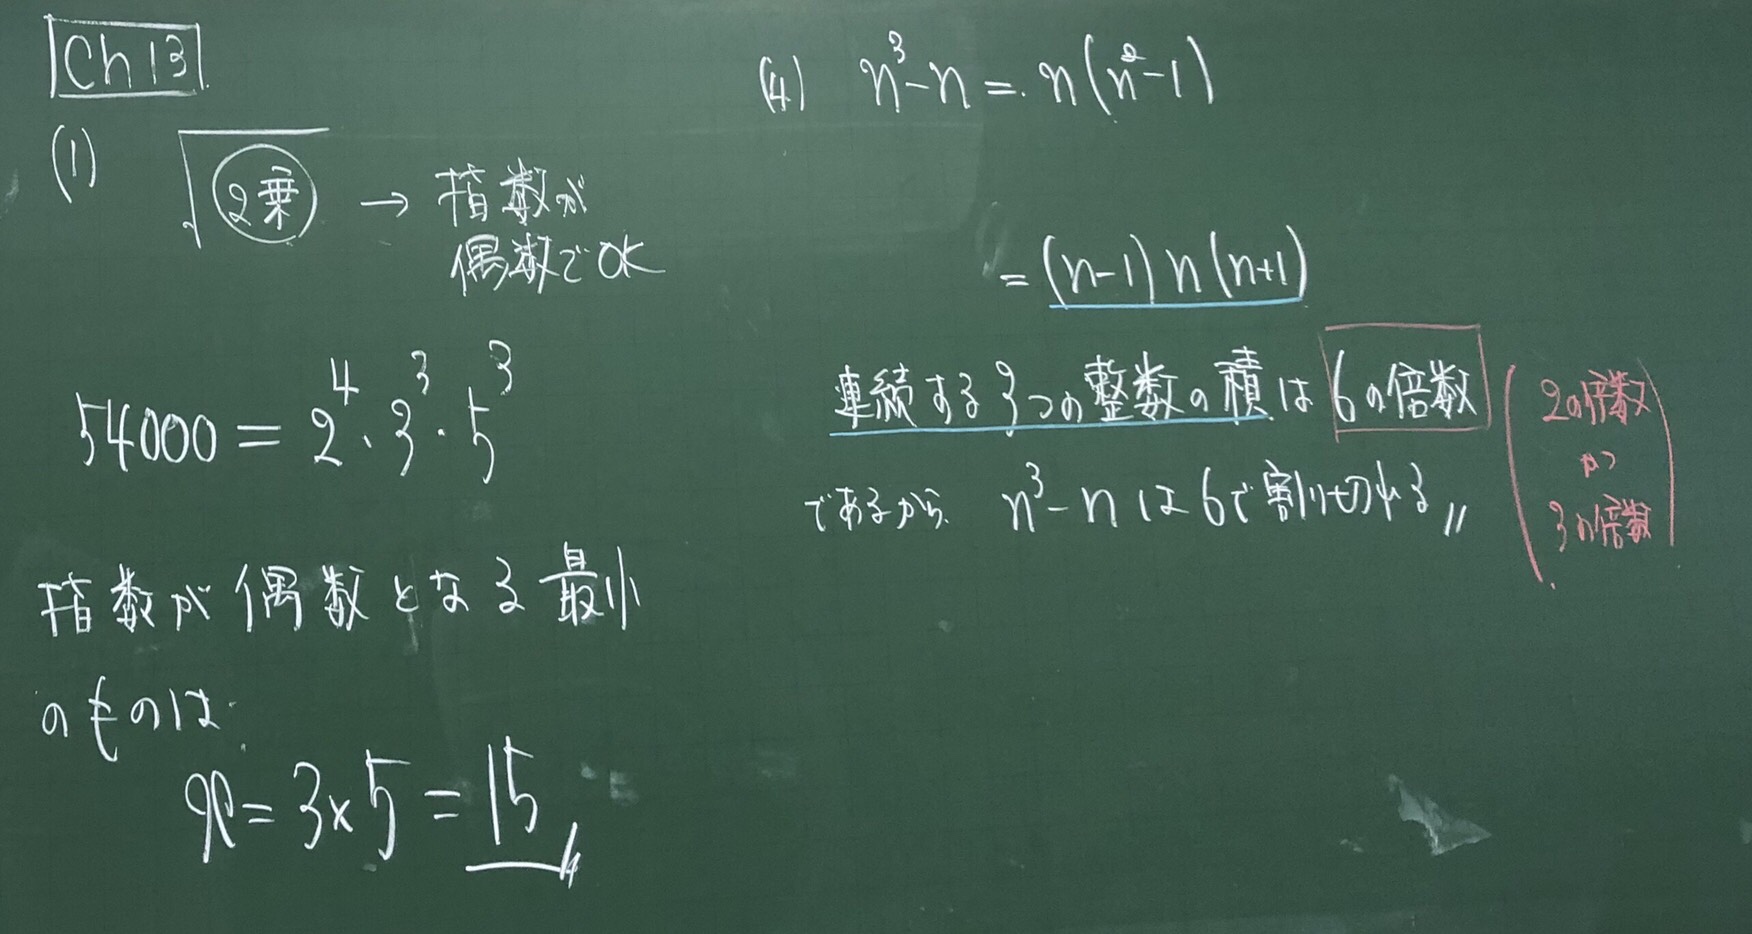 Ch 13
(1) √(2乗) → 指数が
偶数でOK
54000 = 2⁴・3³・5³
指数が偶数となる最小
のものは
= 3×5 = 15
(4) n³-n = n(n²-1)
= (n-1)n(n+1)
連続する3つの整数の積は 6の倍数
であるから n³-n は6で割り切れる〃
2の倍数
かつ
3の倍数